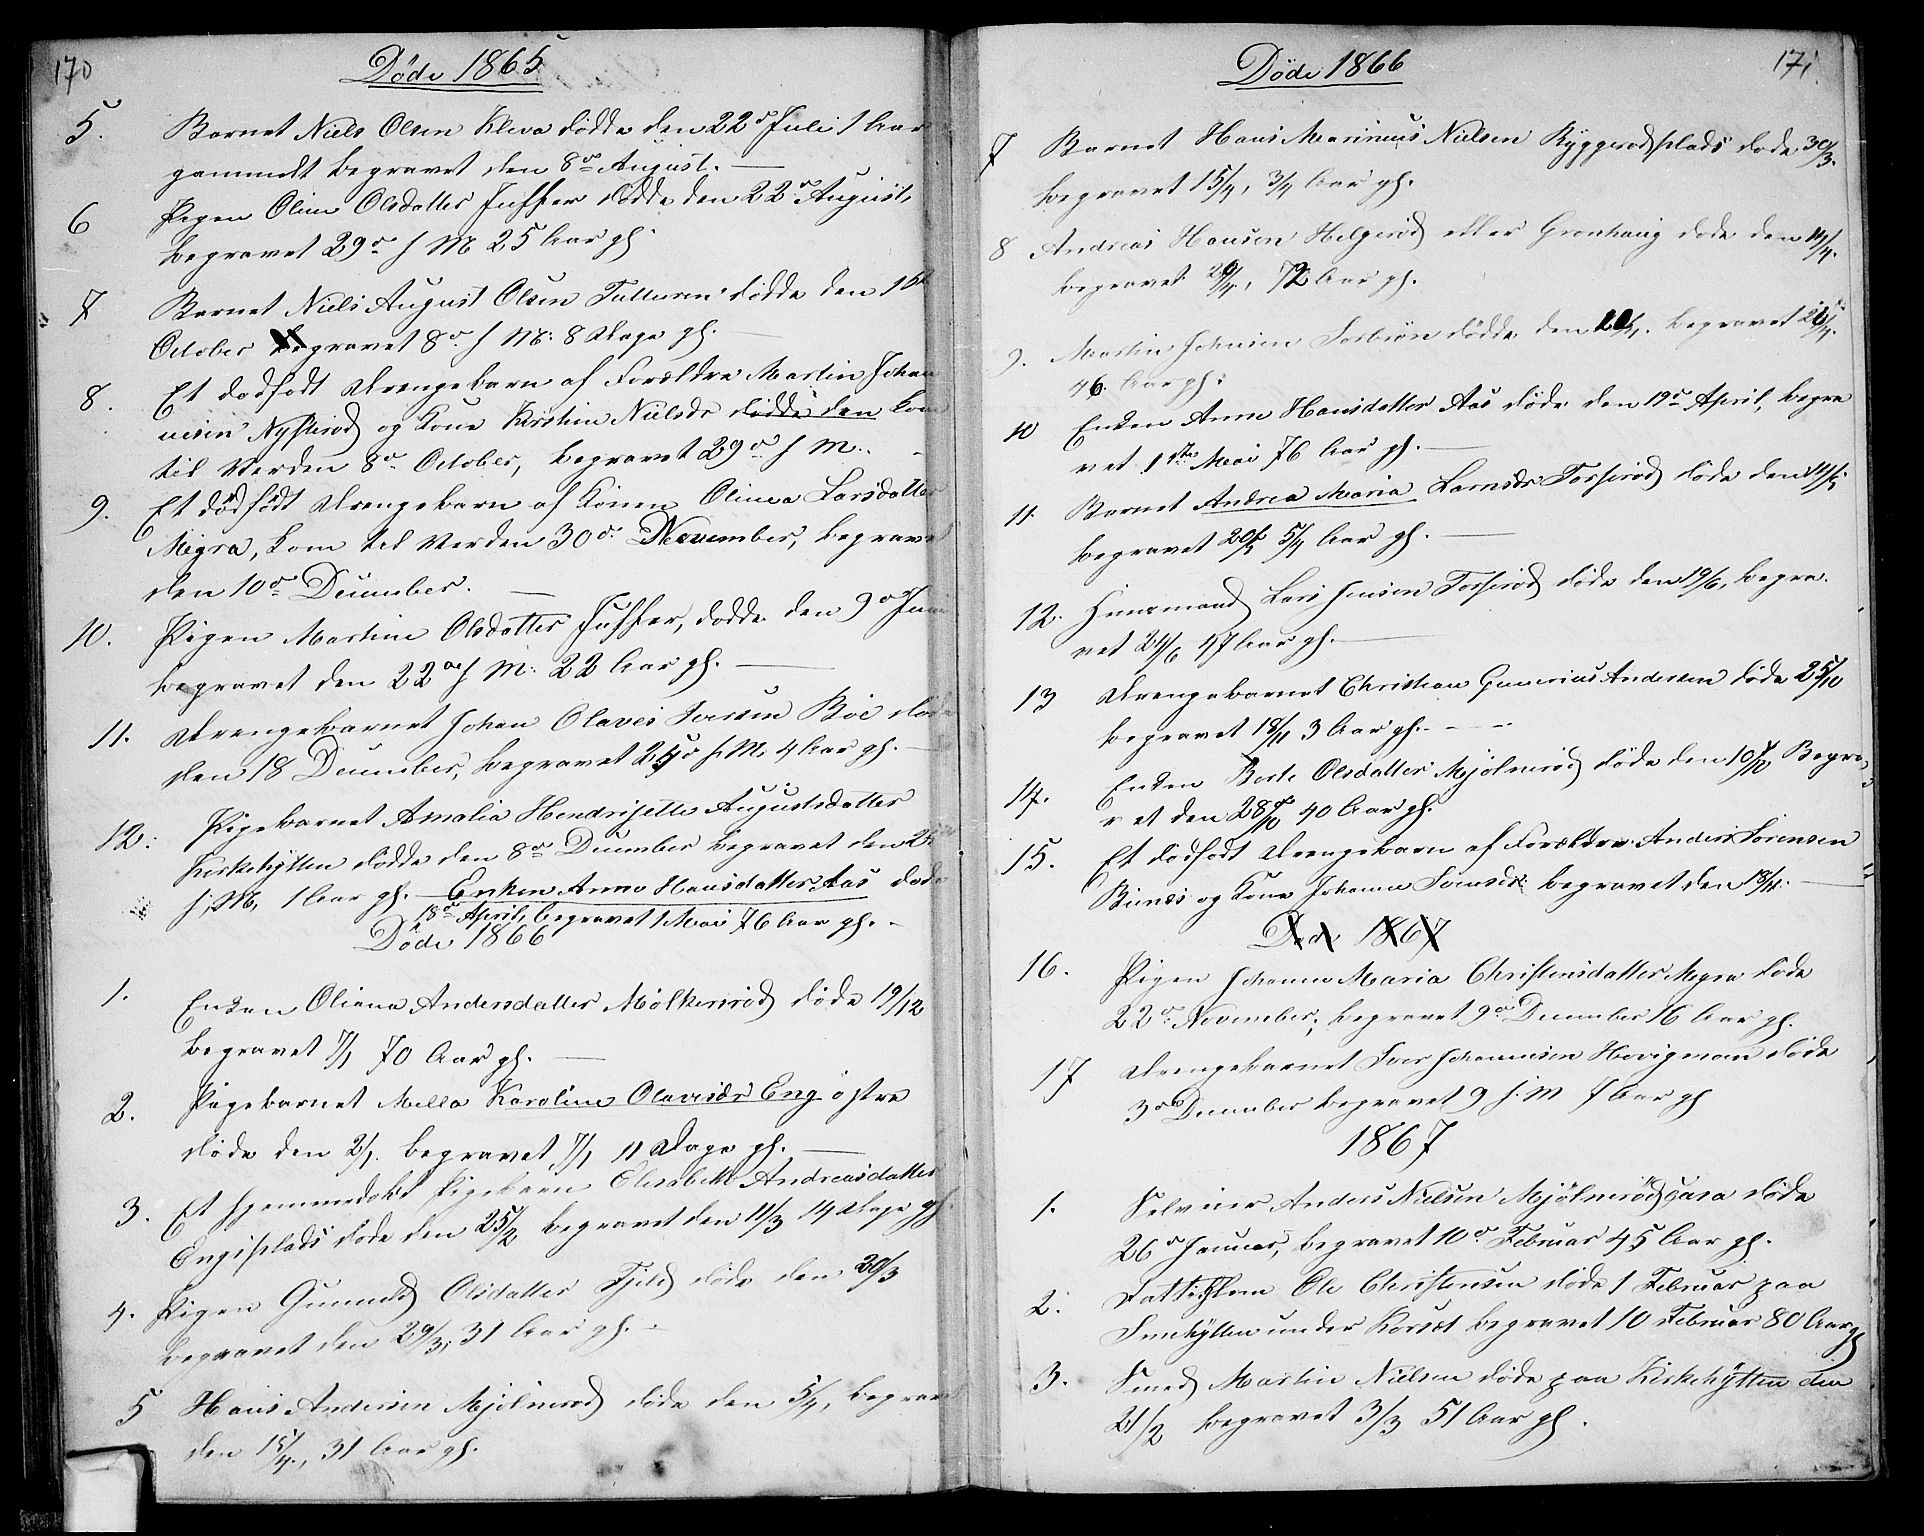 170
Døde 1865
5. Barnet Niels Olsen Kleva dødde den 22de Juli 1 Aar
gammelt begravet den 8de August.
6 Pigen Oline Olsdatter Juffer dødde den 22de August,
begravet 29de s M 25 Aar gl.
7 Barnet Niels August Olsen dødde den 1st
October begravet 8de s M: 8 Dage gl.
8. Et dødfødt Drengebarn af Forældre Martin Johan
nesen Nysterød og Kone Kirstine Nielsdr dødde den kom
til Verden 8de October, begravet 29de s M.
9. Et dødfødt Drengebarn af Konen Olinea Larsdatter
Meyra, kom til Verden 30de November, begravet
den 10de December.
10. Pigen Martine Olsdatter Juffer, dødde den 9de Juni
begravet den 22de s M: 22 Aar gl.
11. Drengebarnet Johan Olaves Iversen Böe døde
den 18 December, begravet s. M. 4 Aar gl.
12. Pigebarnet Amalia Hendrisette Augustsdatter
Kirkehytten dødde den 8de December begravet den
s. M. 1 Aar gl. Enken Anne Hansdatter Aas døde
18de April, begravet 1 Mai 76 Aar gl.
Døde 1866
1. Enken Oliana Andersdatter Mölkerød døde 19/12
begravet 7/1 70 Aar gl.
2. Pigebarnet Mella Karoline Olavesdr Eng østre
døde den 2/1. begravet 7/1 11 Dage gl.
3. Et hjemmedøbt Pigebarn Elisabeth Andreasdatter
Engsplads døde den 25/2 begravet den 11/3 14 Dage gl.
4. Pigen Gunnild Olsdatter Fjeld døde den 20/3
begravet den 29/3, 31 Aar gl.
5 Hans Andersen Mjölnerød døde den 5/4, begravet
den 15/4, 31 Aar gl.
171
Døde 1866
7 Barnet Hans Marinius Nielsen Ryggerødsplads døde 30/3.
begravet 15/4, 3/4 Aar gl.
8 Andreas Hansen Helgerød eller Grønhaug døde den 14/4.
begravet 29/4, 72 Aar gl.
9. Martin Johnsen Sorbrön dødde den begravet
46 Aar gl.
10 Enken Anne Hansdatter Aas døde den 19de April, begra
vet 1ste Mai 76 Aar gl.
11. Barnet Andrea Maria Larsdr Torserød døde den
begravet 20/5 5/4 Aar gl.
12. Huusmand Lars Jensen Torserød døde den 19/6, begra.
vet 24/6 47 Aar gl.
13 Drengebarnet Christian Gunerius Andersen døde 25/10
begravet 18/11 3 Aar gl.
14. Enken Berte Olsdatter Mjölnerød døde den 10/10 Begra,
vet den 28/10 40 Aar gl.
15. Et dødfødt Drengebarn af Forældre Anders Sörensen
Bönes og Kone Johanne Iversdr begravet den 18/11.
Døde 1867
16. Pigen Johanne Maria Christensdatter Meyra døde
22de November, begravet 9de December 16 Aar gl.
17 Drengebarnet Iver Johannesen Hovigmoen døde
3de December begravet 9 s. M 7 Aar gl
1867
1. Selveier Anders Nielsen Mjölnerød døde
26de Januar, begravet 10de Februar 45 Aar gl.
2. Fattiglem Ole Christensen døde 1 Februar paa
Smehytten under Korset begravet 10 Februar 80 Aar gl
3. Smed Martin Nielsen døde paa Kirkehytten den
21/2 begravet 3/3 51 Aar gl.